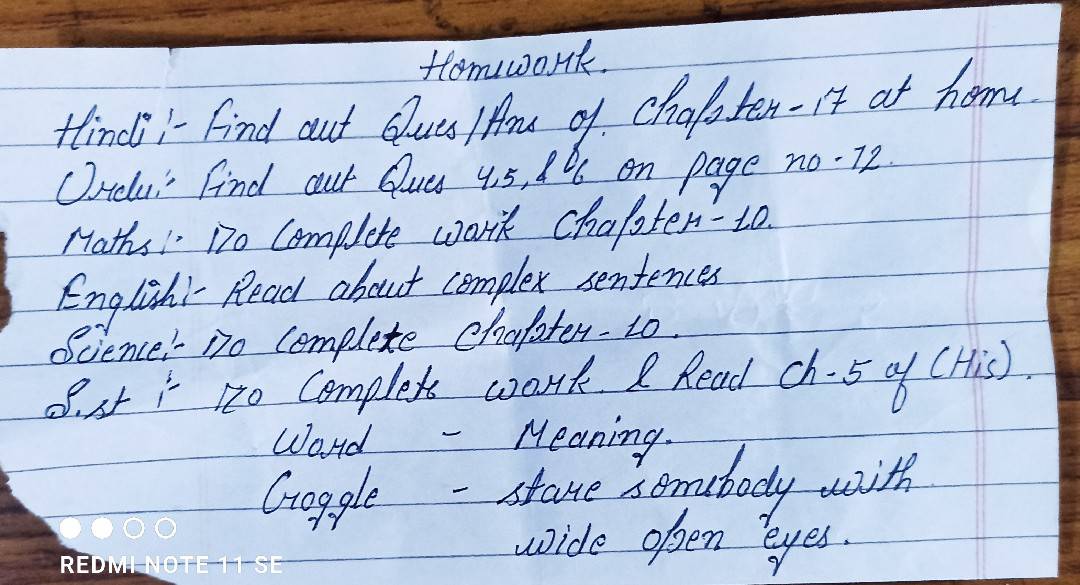 Homework.
Hindi:- Find out Ques/Ans of. Chapter-17 at home.
Urdu:- Find out Ques 4,5, & 6 on page no-72.
Maths:- Do Complete work Chapter-10.
English:- Read about complex sentences
Science:- Do complete Chapter-10.
S.st :- Do Complete work. & Read Ch-5 of (His).
Word - Meaning.
Goggle - stare somebody with
wide open eyes.
REDMI NOTE 11 SE